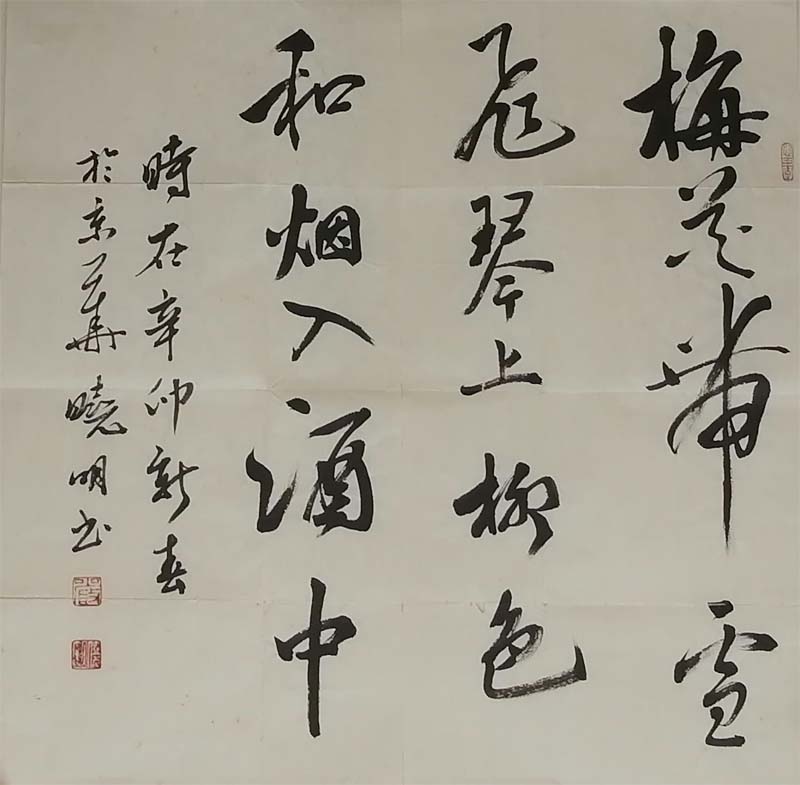 梅花带雪
飞琴上柳色
和烟入酒中
時在辛卯新春
於京華曉明书